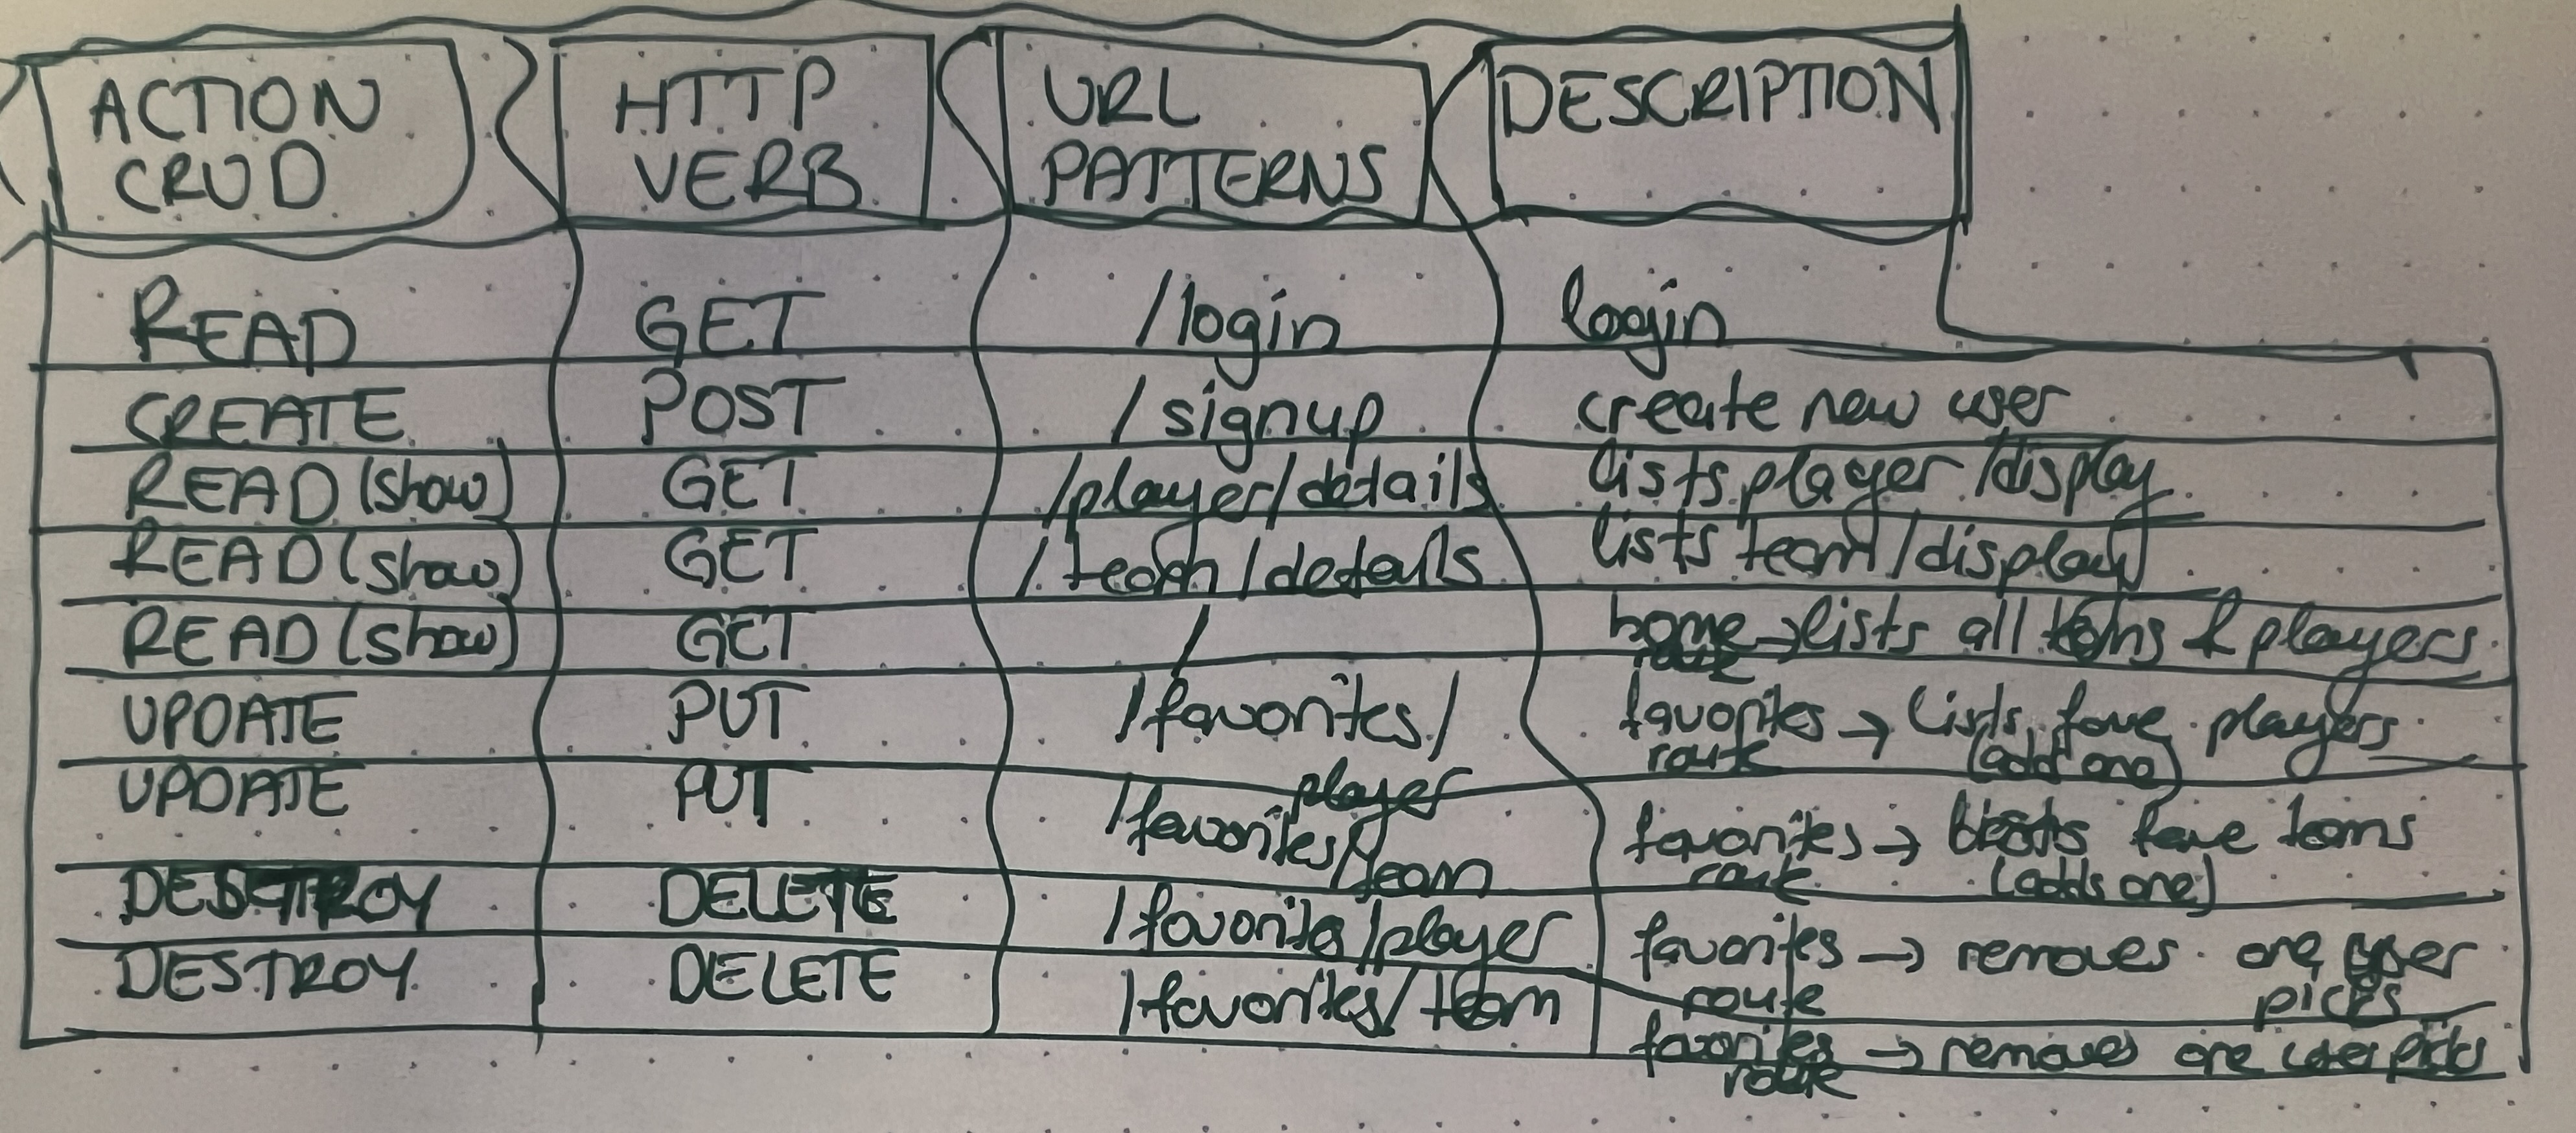 ACTION CRUD HTTP VERB URL PATTERNS DESCRIPTION
READ GET /login login
CREATE POST /signup create new user
READ (show) GET /player/details lists player/display
READ (show) GET /team/details lists team/display
READ (show) GET / home route → lists all teams & players
UPDATE PUT /favorites/player favorites route → lists fave players (add one)
UPDATE PUT /favorites/team favorites route → lists fave teams (adds one)
DESTROY DELETE /favorites/player favorites route → removes one user picks
DESTROY DELETE /favorites/team favorites route → removes one user picks